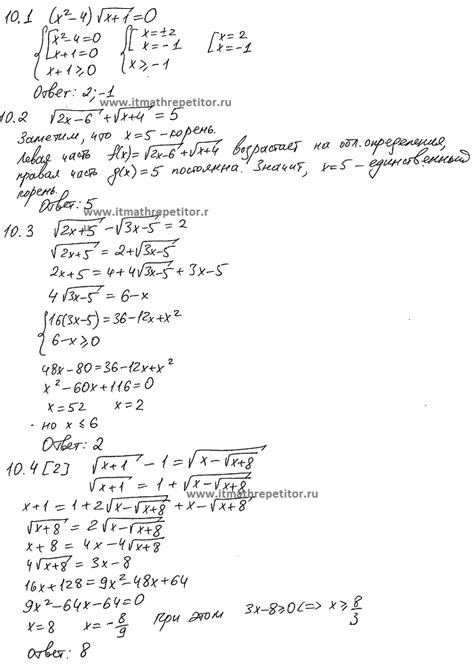 10.1 (x²-4)√(x+1)=0
{ [ x²-4=0 { [ x=±2 [ x=2
x+1=0 x=-1 x=-1
x+1≥0 x≥-1
Ответ: 2;-1
www.itmathrepetitor.ru
10.2 √(2x-6)+√(x+4)=5
Заметим, что x=5-корень.
Левая часть f(x)=√(2x-6)+√(x+4) возрастает на обл.определения,
правая часть g(x)=5 постоянна. Значит, x=5-единственный
корень.
Ответ: 5
www.itmathrepetitor.r
10.3 √(2x+5)-√(3x-5)=2
√(2x+5)=2+√(3x-5)
2x+5=4+4√(3x-5)+3x-5
4√(3x-5)=6-x
{ 16(3x-5)=36-12x+x²
6-x≥0
48x-80=36-12x+x²
x²-60x+116=0
x=52 x=2
но x≤6
Ответ: 2
10.4[2] √(x+1)-1=√(x-√(x+8))
√(x+1)=1+√(x-√(x+8))
www.itmathrepetitor.ru
x+1=1+2√(x-√(x+8))+x-√(x+8)
√(x+8)=2√(x-√(x+8))
x+8=4x-4√(x+8)
4√(x+8)=3x-8
16x+128=9x²-48x+64
9x²-64x-64=0
x=8 x=-8/9 при этом 3x-8≥0<=>x≥8/3
Ответ: 8